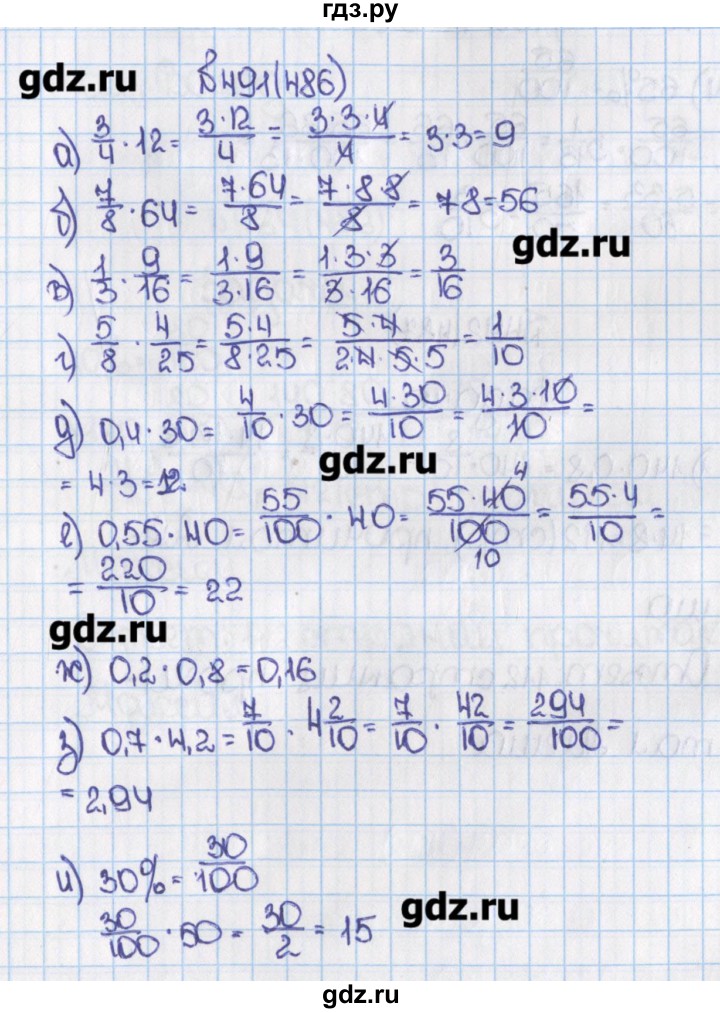 гдз.ру
gdz.ru
В 491(486)
а) 3/4 · 12 = 3·12/4 = 3·3·4/4 = 3·3 = 9
б) 7/8 · 64 = 7·64/8 = 7·8·8/8 = 7 8 = 56
gdz.ru
в) 1/3 · 9/16 = 1·9/3·16 = 1·3·3/3·16 = 3/16
г) 5/8 · 4/25 = 5·4/8·25 = 5·4/2·4·5·5 = 1/10
д) 0,4·30 = 4/10 · 30 = 4·30/10 = 4·3·10/10 =
gdz.ru
= 4·3 = 12
е) 0,55·40 = 55/100 · 40 = 55·40 4/100 10 = 55·4/10 =
= 220/10 = 22
gdz.ru
ж) 0,2·0,8 = 0,16
з) 0,7·4,2 = 7/10 · 4 2/10 = 7/10 · 42/10 = 294/100 =
= 2,94
и) 30% = 30/100
gdz.ru
30/100 · 50 = 30/2 = 15
gdz.ru